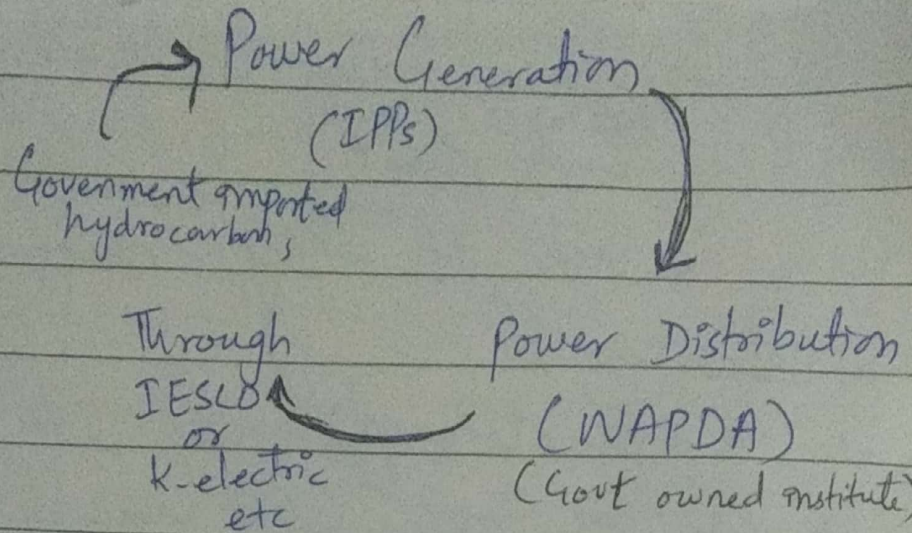 Power Generation
(IPPs)
Govenment imported
hydrocarbons
Through
IESCO
or
K-electric
etc
Power Distribution
(WAPDA)
(Govt owned institute)